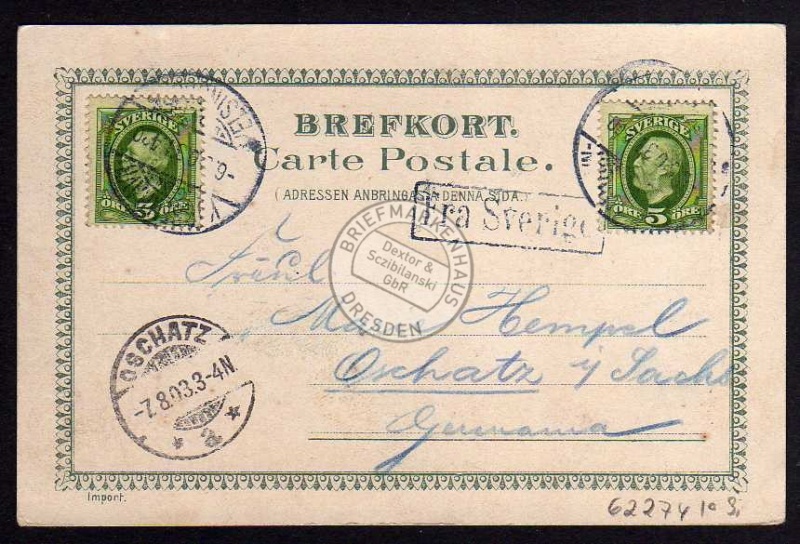 SVERIGE
5
ÖRE
SVERIGE
ÖRE 5 ÖRE
BREFKORT.
Carte Postale.
(ADRESSEN ANBRINGAS Å DENNA SIDA.)
Fra Sverige
BRIEFMARKENHAUS
Dextor &
Sczibilanski
GbR
DRESDEN
Fräul.
Max Hempel
Oschatz i/ Sachs
Germania
OSCHATZ
-7.8.03.3-4N.
* a *
Import.
62274